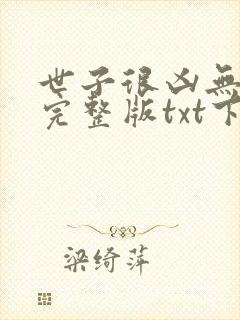 世子很凶無
完整版txt下
梁绮萍